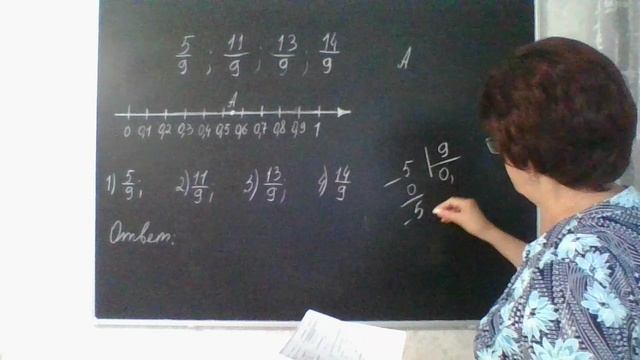 5/9 ; 11/9 ; 13/9 ; 14/9
A
A
0 0,1 0,2 0,3 0,4 0,5 0,6 0,7 0,8 0,9 1
1) 5/9; 2) 11/9; 3) 13/9; 4) 14/9
5 | 9
0 0,
5
Ответ: